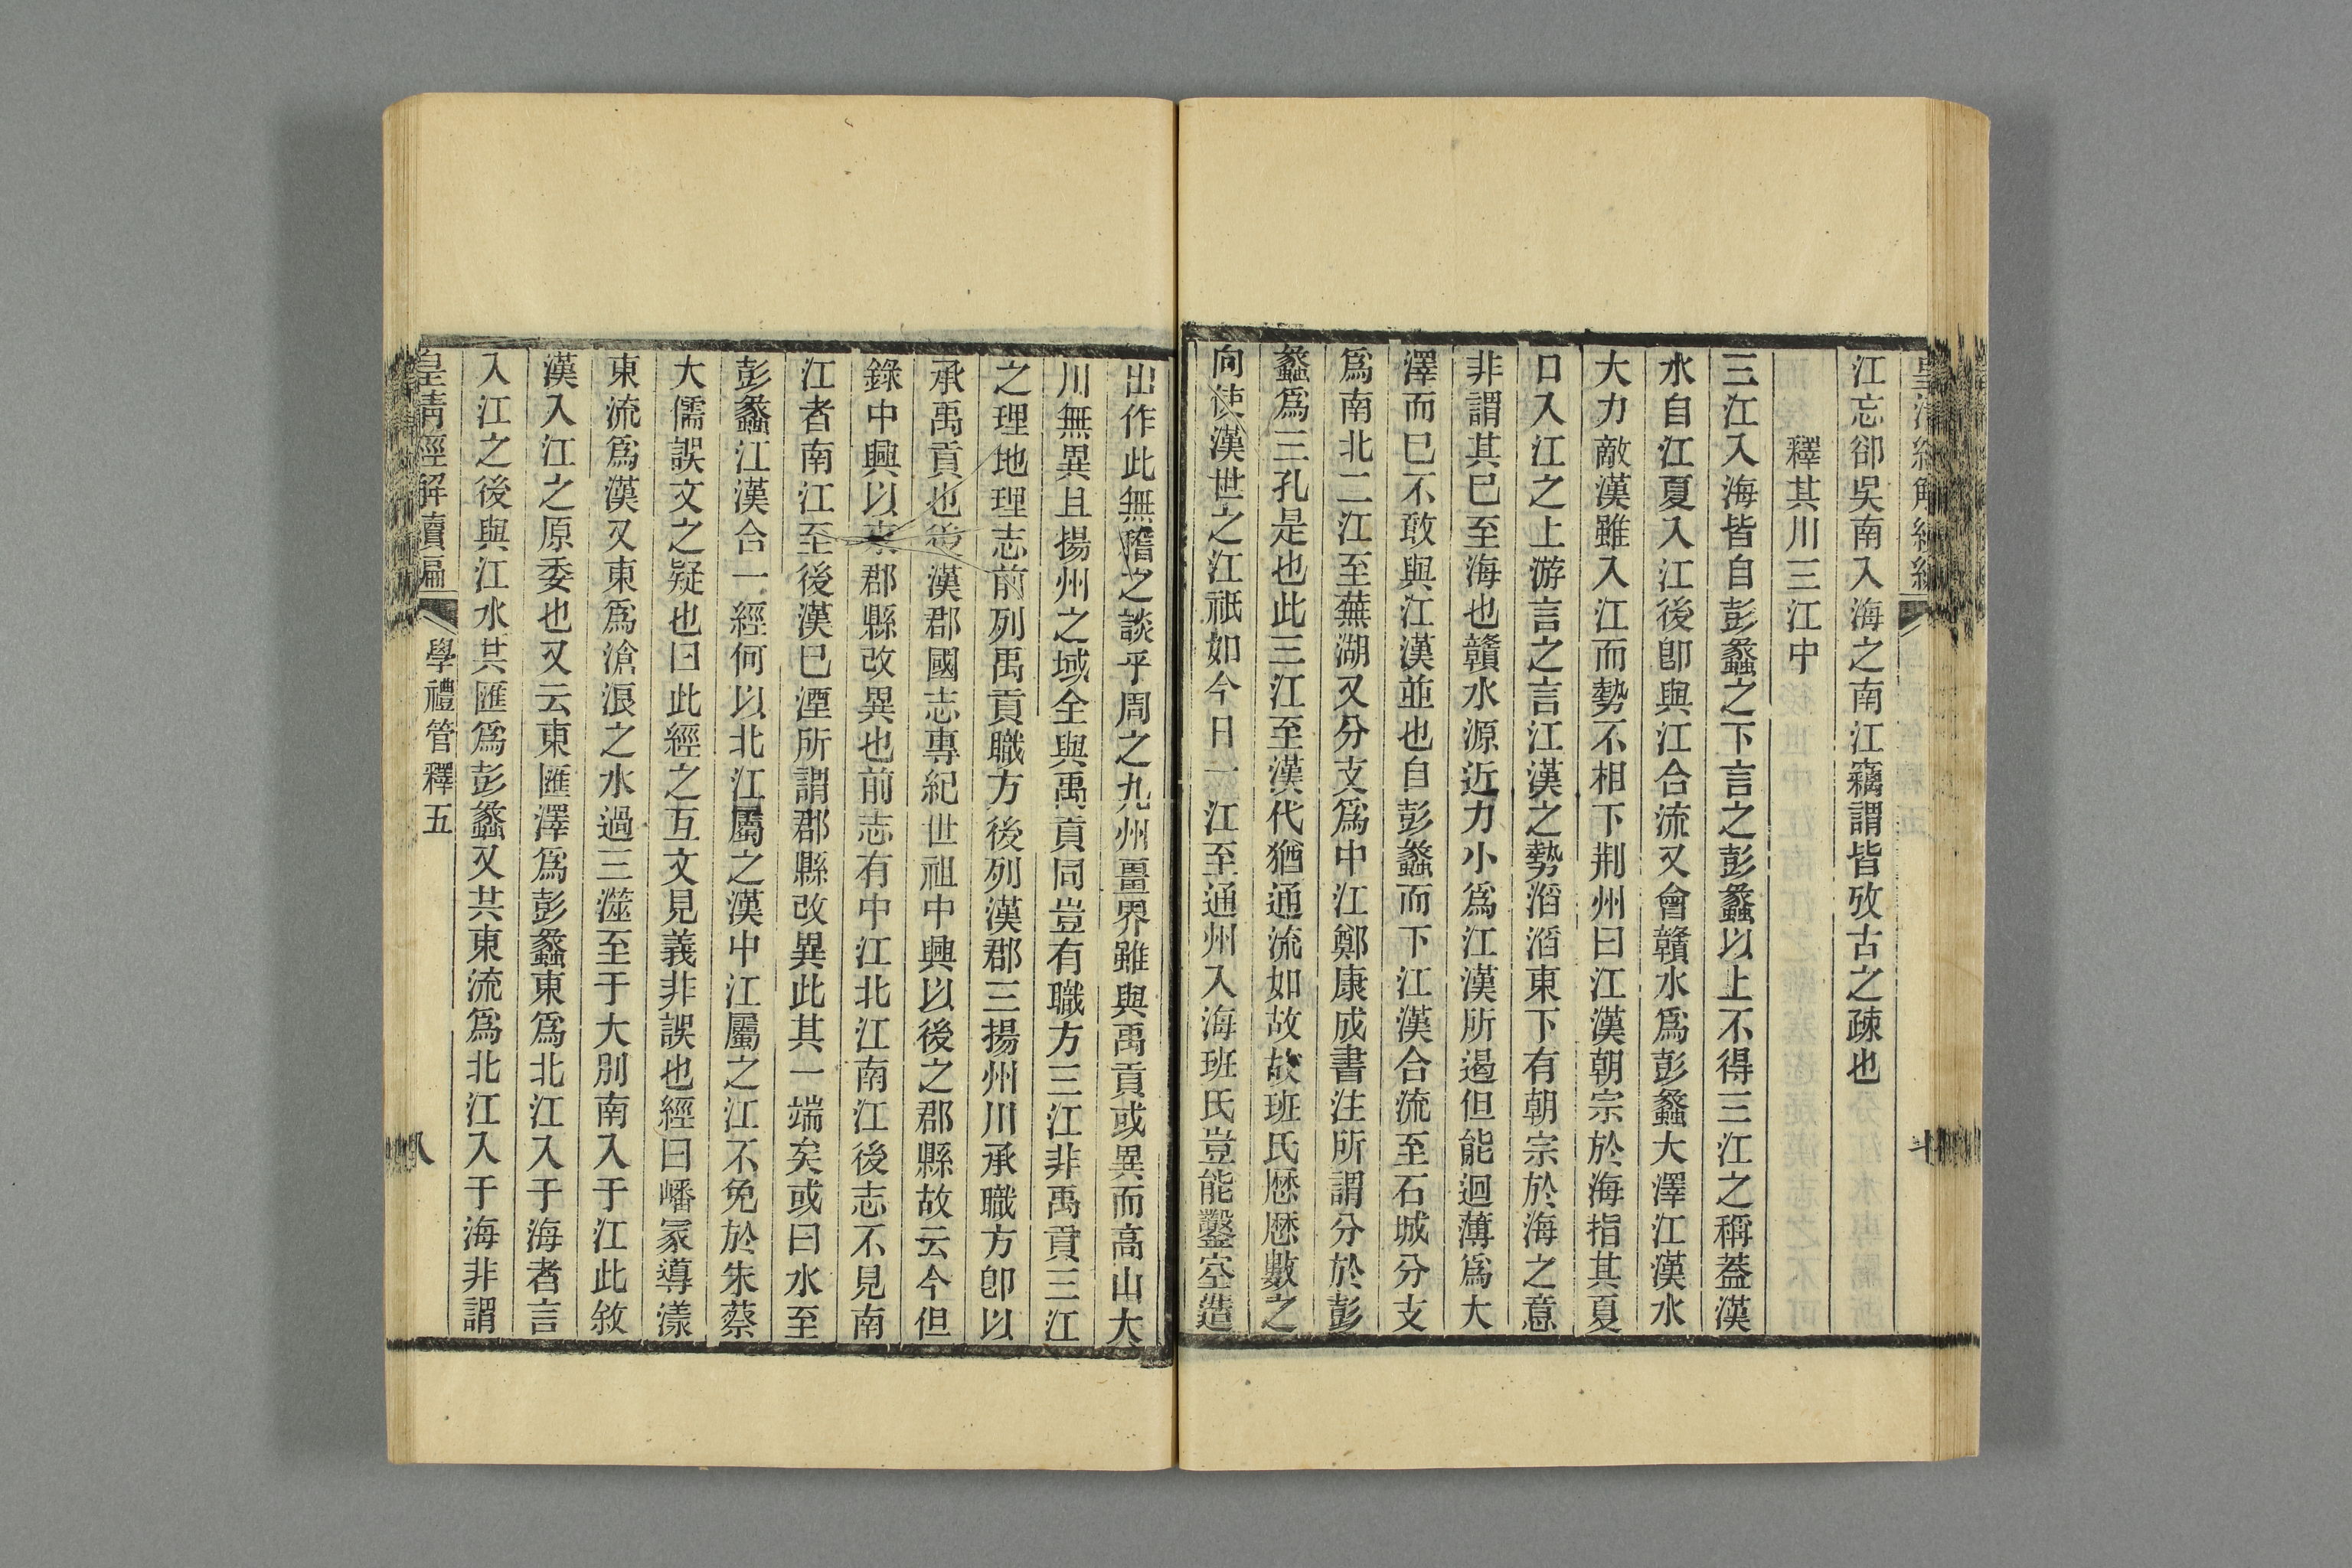 江忘卻吳南入海之南江竊謂皆攷古之疎也
釋其川三江中
三江入海皆自彭蠡之下言之彭蠡以上不得三江之稱葢漢
水自江夏入江後卽與江合流又會贛水爲彭蠡大澤江漢水
大力敵漢雖入江而勢不相下荆州曰江漢朝宗於海指其夏
口入江之上游言之言江漢之勢滔滔東下有朝宗於海之意
非謂其已至海也贛水源近力小爲江漢所遏但能迴薄爲大
澤而已不敢與江漢並也自彭蠡而下江漢合流至石城分支
爲南北二江至蕪湖又分支爲中江鄭康成書注所謂分於彭
蠡爲三孔是也此三江至漢代猶通流如故故班氏歷歷數之
向使漢世之江祇如今日一江至通州入海班氏豈能鑿空造
出作此無稽之談乎周之九州畺界雖與禹貢或異而高山大
川無異且揚州之域全與禹貢同豈有職方三江非禹貢三江
之理地理志前列禹貢職方後列漢郡三揚州川承職方卽以
承禹貢也後漢郡國志專紀世祖中興以後之郡縣故云今但
錄中興以來郡縣改異也前志有中江北江南江後志不見南
江者南江至後漢已湮所謂郡縣改異此其一端矣或曰水至
彭蠡江漢合一經何以北江屬之漢中江屬之江不免於朱蔡
大儒誤文之疑也曰此經之互文見義非誤也經曰嶓冢導漾
東流爲漢又東爲滄浪之水過三澨至于大別南入于江此敘
漢入江之原委也又云東匯澤爲彭蠡東爲北江入于海者言
入江之後與江水共匯爲彭蠡又共東流爲北江入于海非謂
皇清經解續編
學禮管釋五
八